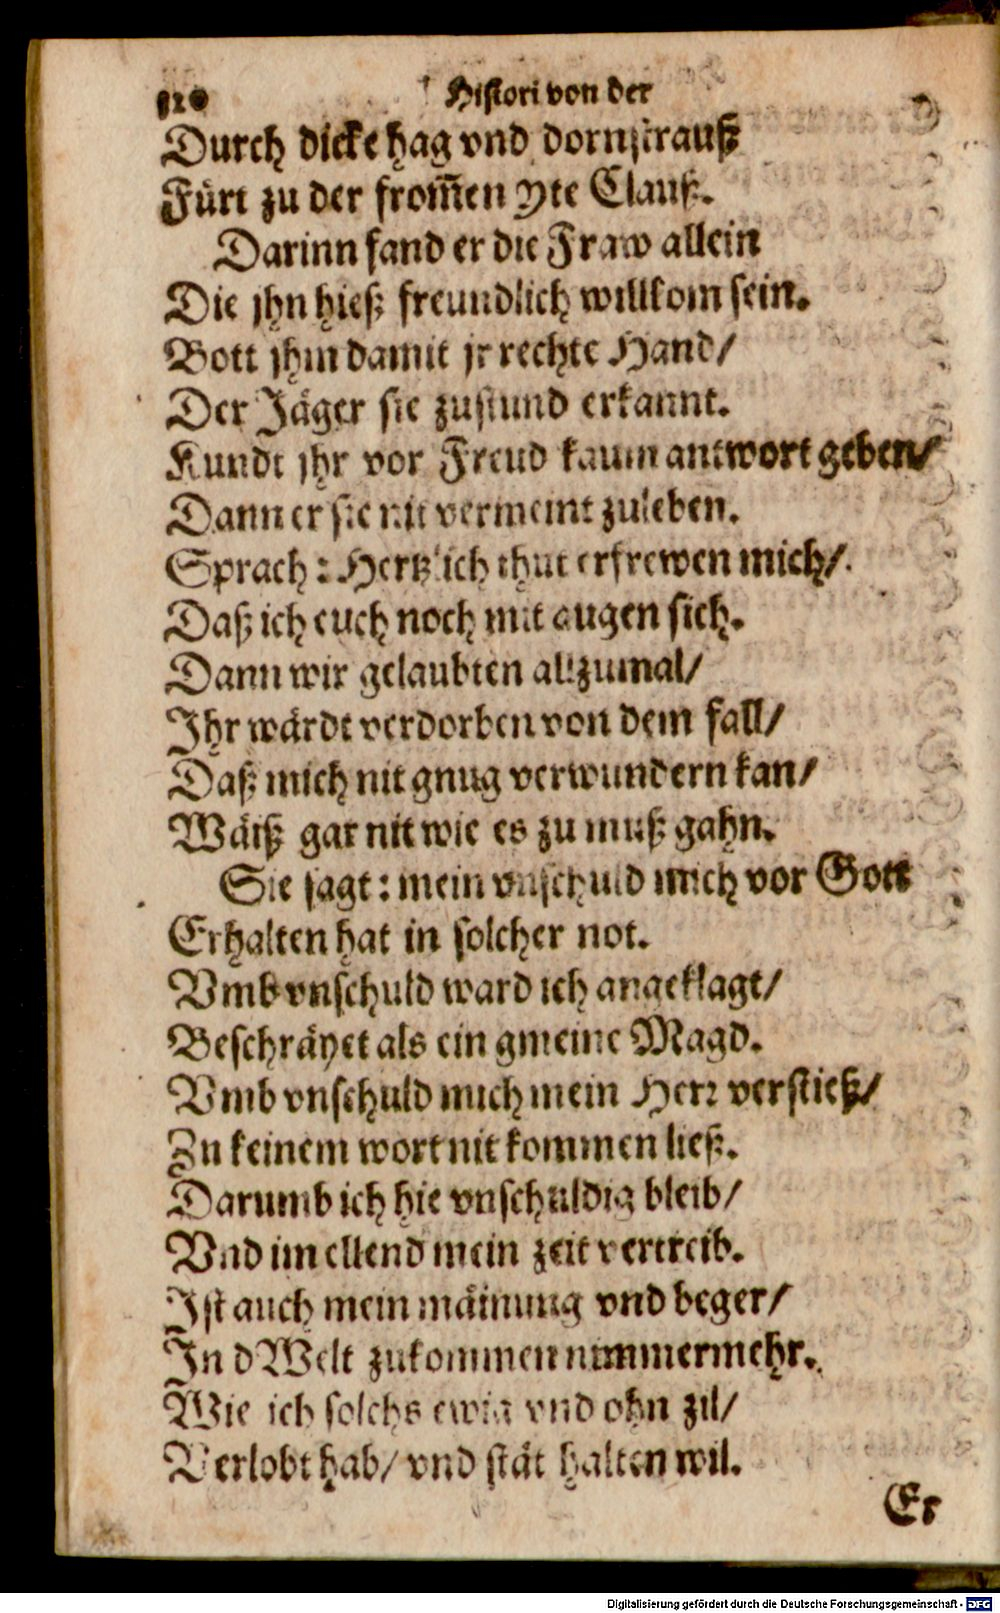 Histori von der
Durch dicke hag vnd dornstrauß
Fürt zu der from̃en yte Clauß.
Darinn fand er die Fraw allein
Die jhn hieß freundlich willkom sein.
Bott jhm damit jr rechte Hand/
Der Jäger sie zustund erkannt.
Kundt jhr vor Freud kaum antwort geben/
Dann er sie nit vermeint zuleben.
Sprach: Hertzlich thut erfrewen mich/
Daß ich euch noch mit augen sich.
Dann wir gelaubten allzumal/
Ihr wärdt verdorben von dem fall/
Daß mich nit gnug verwundern kan/
Wäiß gar nit wie es zu muß gahn.
Sie sagt: mein vnschuld mich vor Gott
Erhalten hat in solcher not.
Vmb vnschuld ward ich angeklagt/
Beschräyet als ein gmeine Magd.
Vmb vnschuld mich mein Herr verstieß/
Zu keinem wort nit kommen ließ.
Darumb ich hie vnschuldig bleib/
Vnd im ellend mein zeit vertreib.
Ist auch mein mäinung vnd beger/
In d Welt zukommen nimmermehr.
Wie ich solchs ewig vnd ohn zil/
Verlobt hab/ vnd stät halten wil.
Er
Digitalisierung gefördert durch die Deutsche Forschungsgemeinschaft - DFG